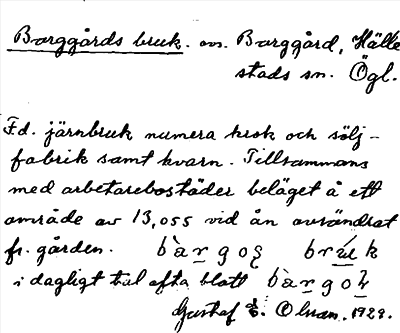 Barggårds bruk. om. Barggård, Hälle
stads sn. Ögl.
Fd. järnbruk numera krok och sölj-
fabrik samt kvarn. Tillsammans
med arbetarebostäder beläget å ett
område av 13,055 vid ån avsöndrat
fr. gården. bàrgoş bruk
i dagligt tal ofta blott bàrgo
Gustaf E. Olsson. 1929.